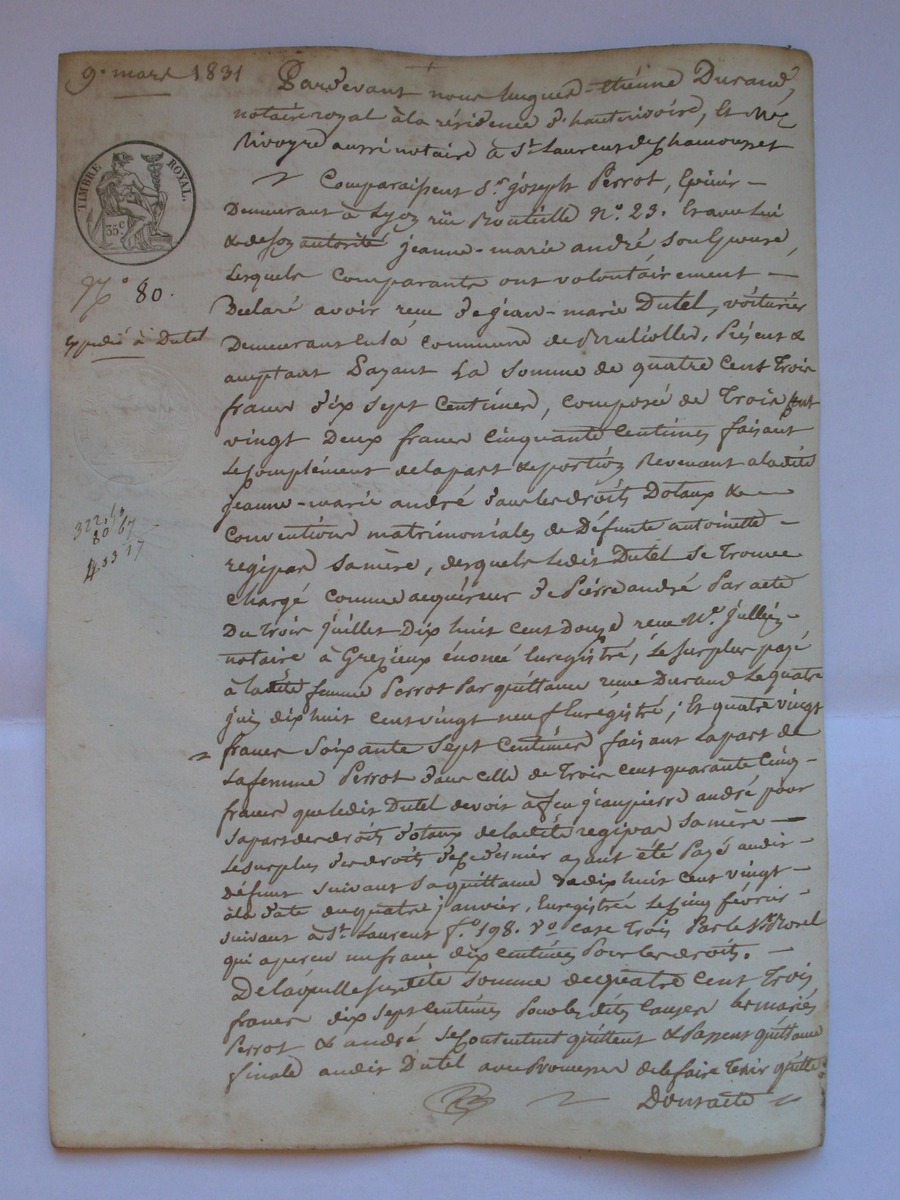 9. mars 1831
Pardevant nous hugues-étienne Durand,
notaire royal à la résidence d'hauterivoire, et Me
Rivoyre aussi notaire à St. Laurent de Chamousset
Comparaissent Sr. joseph Perrot, Epicier
Demeurant à Lyon rüe Bouteille No. 23. Et avec lui
& de son autorité jeanne-marie andré son Epouse,
Lesquels comparants ont volontairement
Declaré avoir recu de jean-marie Dutel, voiturier
Demeurant en la commune de Brullioles, Présent &
acceptant Payant La somme de quatre cent trois
francs dix sept centimes, composée de Trois cent
vingt deux francs cinquante centimes faisant
Le complément de la part & portion Revenant a ladite
jeanne-marie andré dans les droits Dotaux &
conventions matrimoniales de Défunte antoinette
regipas sa mère, desquels ledit Dutel se trouve
chargé comme acquéreur de Pierre andré Par acte
Du trois juillet Dix huit cent douze recu Me. jullien
notaire à Grezieux énoncé Enregistré, Le surplus payé
à ladite femme Perrot Par quittance recue Durand Le quatre
juin dix huit cent vingt neuf Enregistré; Et quatre vingt
francs soixante sept centimes faisant la part de
La femme Perrot dans celle de trois cent quarante cinq
francs que ledit Dutel devoit à feu jean pierre andré pour
sa part des droits dotaux de ladite regipas sa mère
Le surplus des droits de ce dernier ayant été Payé audit
défunt suivant sa quittance de dix huit cent vingt
à la date du quatre janvier, Enregistrée Le cinq février
suivant à St. Laurent fo. 198. Vo case trois Par le Sr. Morel
qui a percu un franc dix centimes Pour les droits.
De laquelle susdite somme de quatre cent trois
francs dix sept centimes Pour les dites causes les mariés
Perrot & andré se contentent quittent & Passent quittance
finale audit Dutel avec Promesse de le faire tenir quitte
Dont acte
TIMBRE ROYAL.
35c
No 80.
Expédié à Dutel
322,50
80 67
403 17